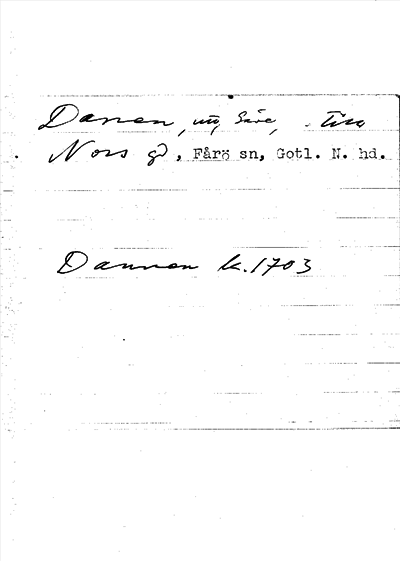 Danen, Säve, till
Nors gd, Fårö sn, Gotl. N. hd.
Dannen k. 1703